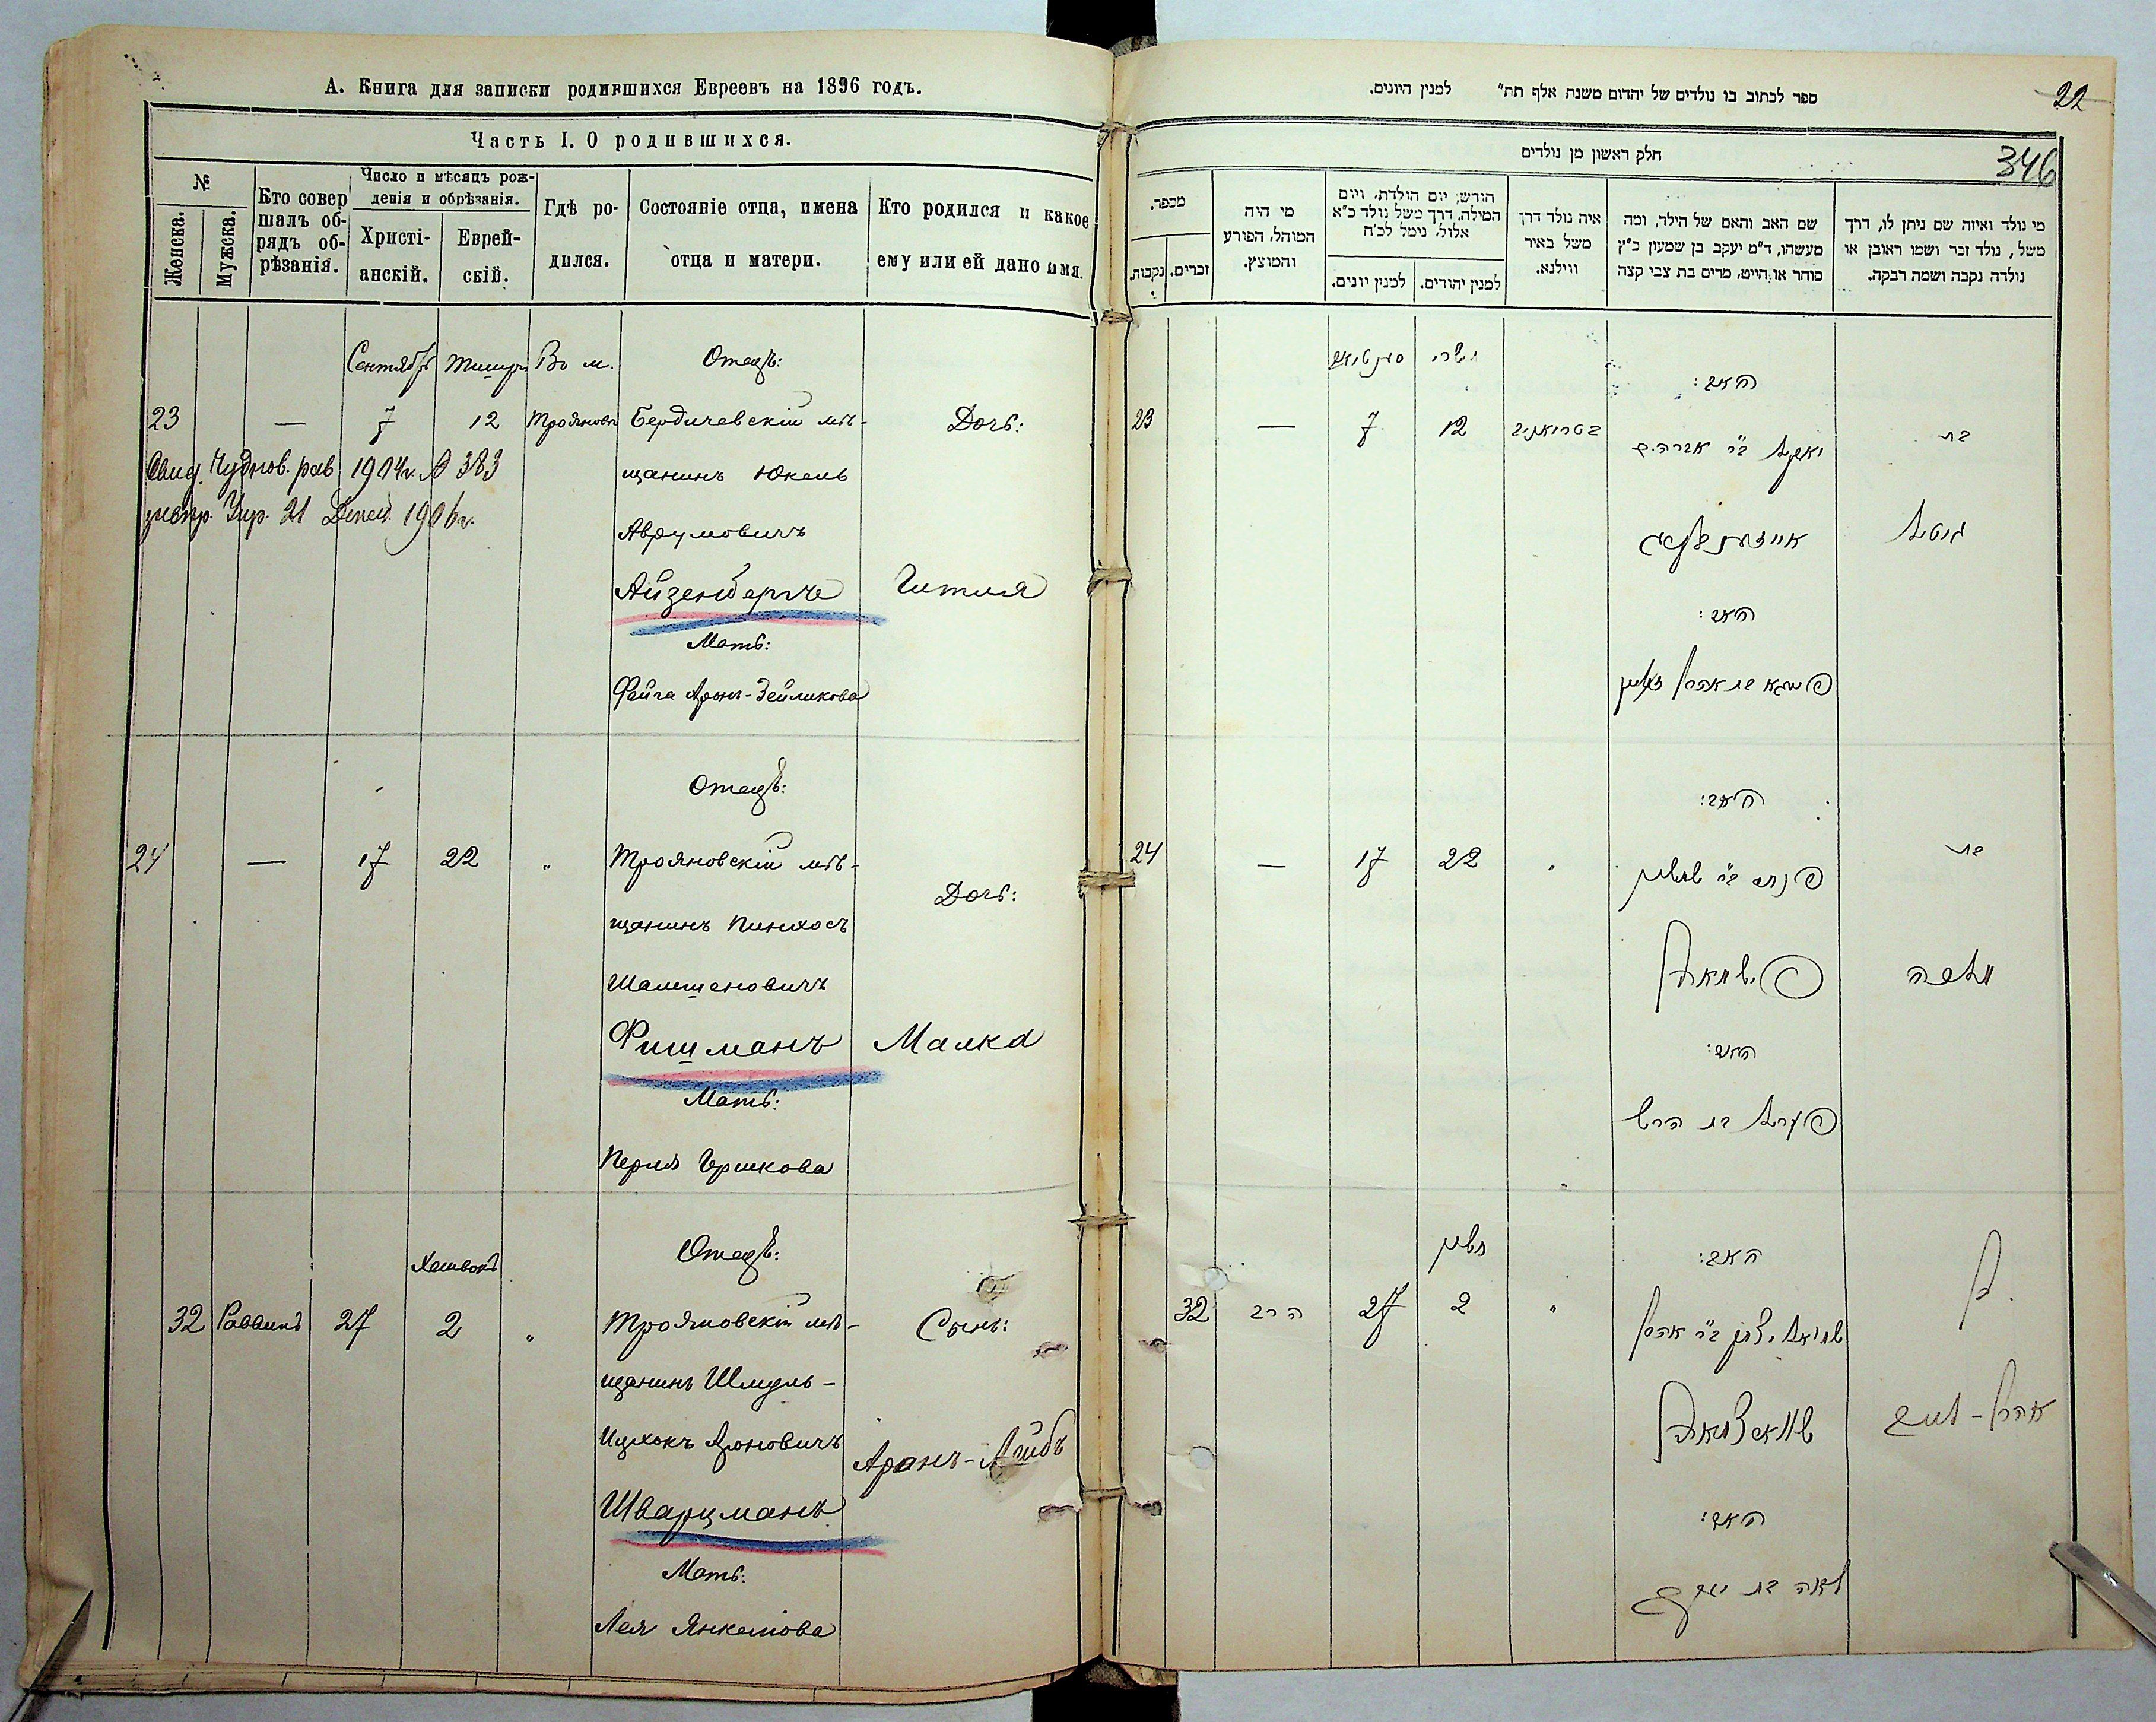 А. Книга для записки родившихся Евреевъ на 1896 годъ.
Часть I. О родившихся.
№
Женска.
Мужска.
Кто совер
шалъ об-
рядъ об-
рѣзанія.
Число и мѣсяцъ рож-
денія и обрѣзанія.
Христі-
анскій.
Еврей-
скій.
Гдѣ ро-
дился.
Состояніе отца, имена
отца и матери.
Кто родился и какое
ему или ей дано имя.
Сентябрь Тишри Во м. Отецъ:
23 — 7 12 Трояновѣ Бердичевскій мѣ- Дочь:
Свид. Чуднов. рав. 1904г. № 383
щанинъ Юкель
21 1906г.
Аврумовичъ
Айзенбергъ Гитля
Мать:
Фейга Аронъ-Зейликова
Отецъ:
24 — 17 22 „ Трояновскій мѣ-
Дочь:
щанинъ Пинхосъ
Шамшеновичъ
Фишманъ Малка
Мать:
Перля Гершкова
Хешвонъ Отецъ:
32 Раввинъ 27 2 „ Трояновскій мѣ- Сынъ:
щанинъ Шмуль-
Ицхокъ Ароновичъ
Аронъ-Лейбъ
Шварцманъ
Мать:
Лея Янкелова
22
ספר לכתוב בו נולדים של יהדום משנת אלף תת״ למנין היונים.
346
חלק ראשון מן נולדים
מכפר.
נקבות.
זכרים.
מי היה
המוהל, הפורע
והמוצץ.
חודש, יום הולדת, ויום
המילה, דרך משל נולד כ״א
אלול, נימל לכ״ח
למנין יונים.
למנין יהודים.
איה נולד דרך
משל באיר
ווילנא.
שם האב והאם של הילד, ומה
מעשהו, ד״מ יעקב בן שמעון כ״ץ
סוחר או חייט, מרים בת צבי קצה
מי נולד ואיזה שם ניתן לו, דרך
משל, נולד זכר ושמו ראובן או
נולדה נקבה ושמה רבקה.
תשרי
האב:
23 — 7 12 בת
יאקל ב״ר אברהם
אייזענבערג גיטל
האם:
פייגא בת אהרן זעליג
האב:
24 — 17 22 „ בת
פנחס ב״ר שמשון
פישמאן מלכה
האם:
פערל בת הרש
חשון
האב:
32 הרב 27 2 „ בן
שמואל יצחק ב״ר אהרן
שווארצמאן אהרן-לייב
האם:
לאה בת יעקב